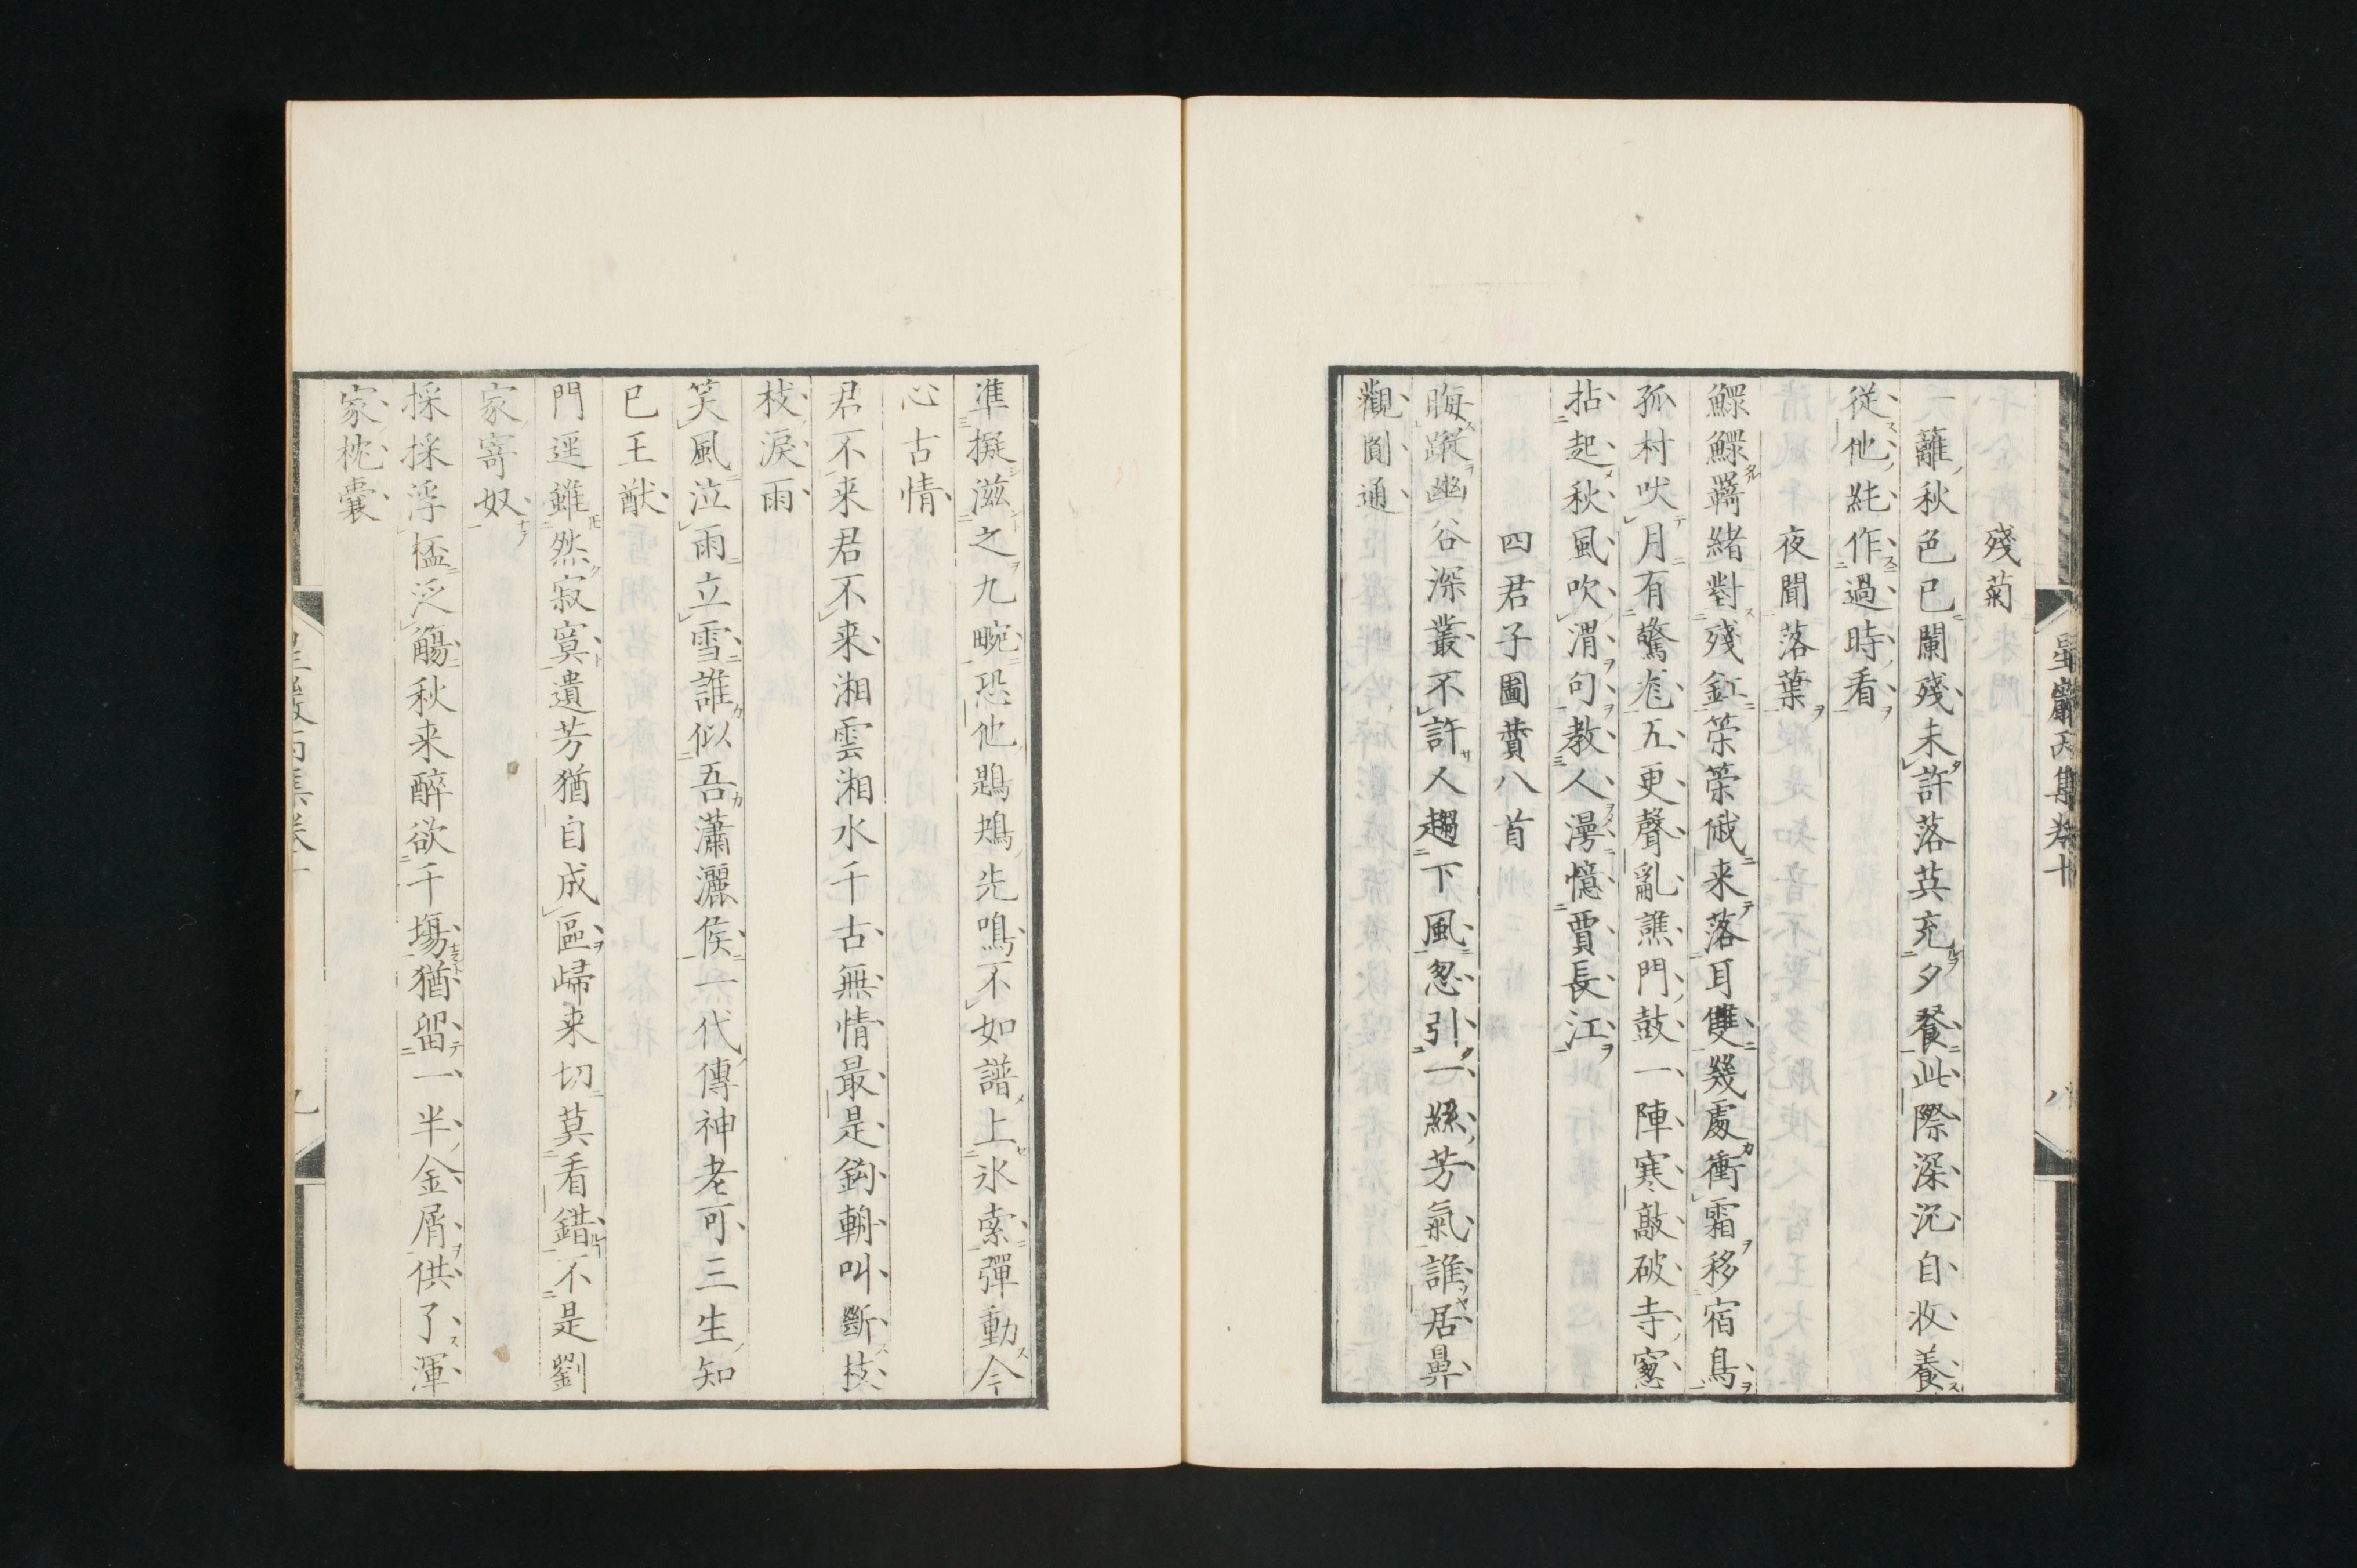 殘菊
一籬秋色已闌殘未許落英充夕餐此際深沉自收養
從他紕作過時看
夜聞落葉
鰥鰥羈緒對殘釭策策俄来落耳雙幾處衝霜移宿鳥
孤村吠月有驚尨五更聲亂譙門鼓一陣寒敲破寺窓
拈起秋風吹渭句教人漫憶賈長江
四君子圖贊八首
晦蹤幽谷深叢不許人趨下風忽引一縣芳氣誰居鼻
觀圓通
準擬滋之九畹恐他鶗鴂先鳴不如譜上氷索彈動今
心古情
君不来君不来湘雲湘水千古無情最是鉤輈叫斷枝
枝淚雨
笑風泣雨立雪誰似吾瀟灑侯一代傳神老可三生知
已王猷
門逕雖然寂寞遺芳猶自成區歸来切莫看錯不是劉
家寄奴
採採浮㯽泛觴秋来醉欲千場猶留一半金屑供了渾
家枕囊
星巖丙集卷十
八
星巖丙集卷十
九